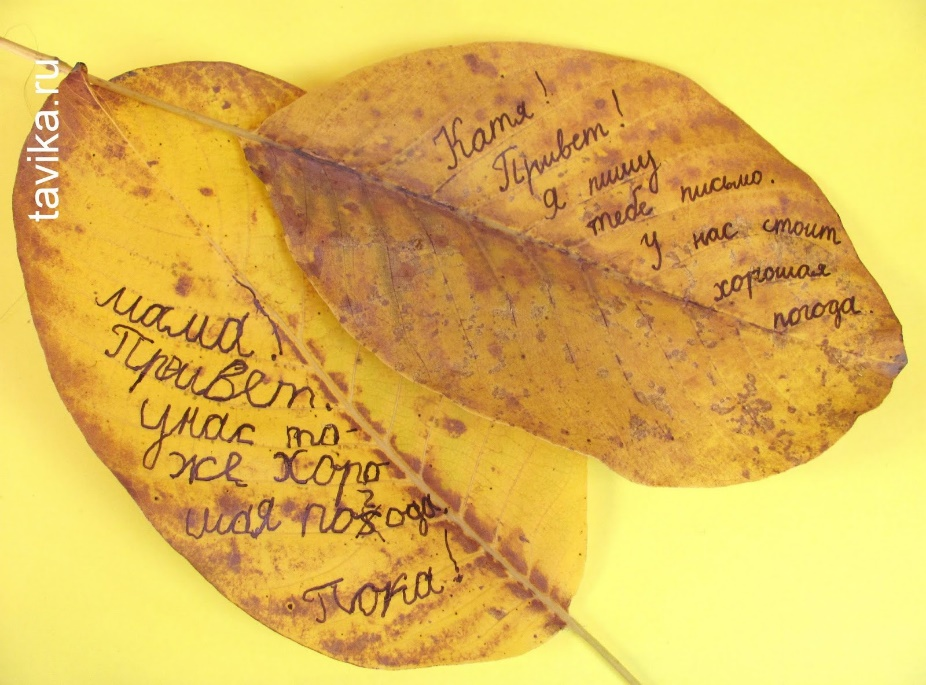 tavika.ru
Катя!
Привет!
Я пишу
тебе письмо.
У нас стоит
хорошая
погода.
мама!
Привет.
унас то-
же Хоро
шая погода.
Пока!